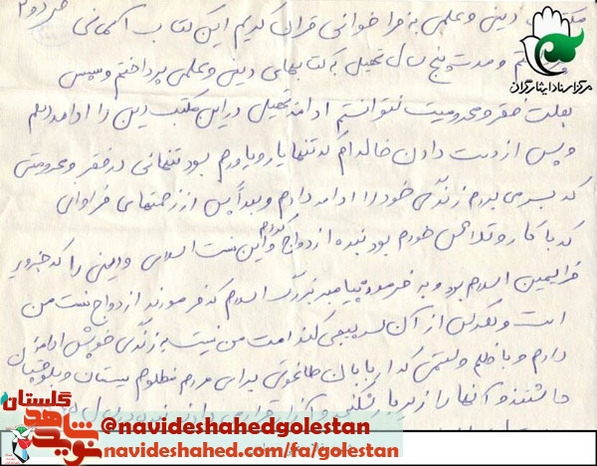 دینی و علمی به فرا خوانی قرآن کردیم این کتاب آسمانی
و مدت پنج سال تحصیل به کتابهای دینی و علمی پرداختم و سپس
بعلت فقر و محرومیت نتوانستم ادامه تحصیل در این مکتب دین را ادامه دهم
و پس از دست دادن خاله ام که تنها یار و یاورم بود تنهائی در فقر و محرومیتی
که بسر می بردم زندگی خود را ادامه دادم و بعداً پس از زحمتهای فراوانی
که با کار و تلاش خودم بود بنده ازدواج کردم و این سنت اسلامی و دینی را که جزو
فرایض اسلام بود و به فرموده پیامبر بزرگ اسلام که فرمودند ازدواج سنت من
است و هر کس از آن سرپیچی کند از امت من نیست به زندگی خویش ادامه
دادم و با ظلم و ستمی که اربابان طاغوتی برای مردم مظلوم سیستان و بلوچستان
داشتند و آنها را زیر بار
مرکز اسناد ایثارگران
گلستان
نوید شاهد
@navideshahedgolestan
navideshahed.com/fa/golestan